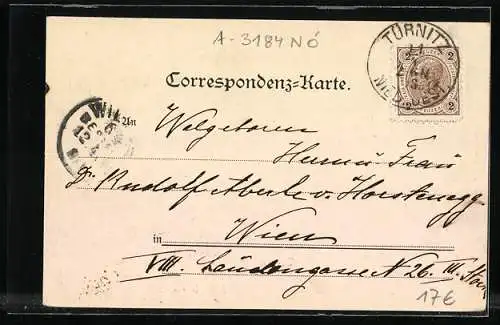 A-3184 NÖ
TÜRNITZ
Correspondenz-Karte.
WI
An Wolgeboren
Herrn u Frau
Dr. Rudolf Aberle v. Horstenegg
in Wien
VIII. Laudongasse N 26 III. Stock
17€